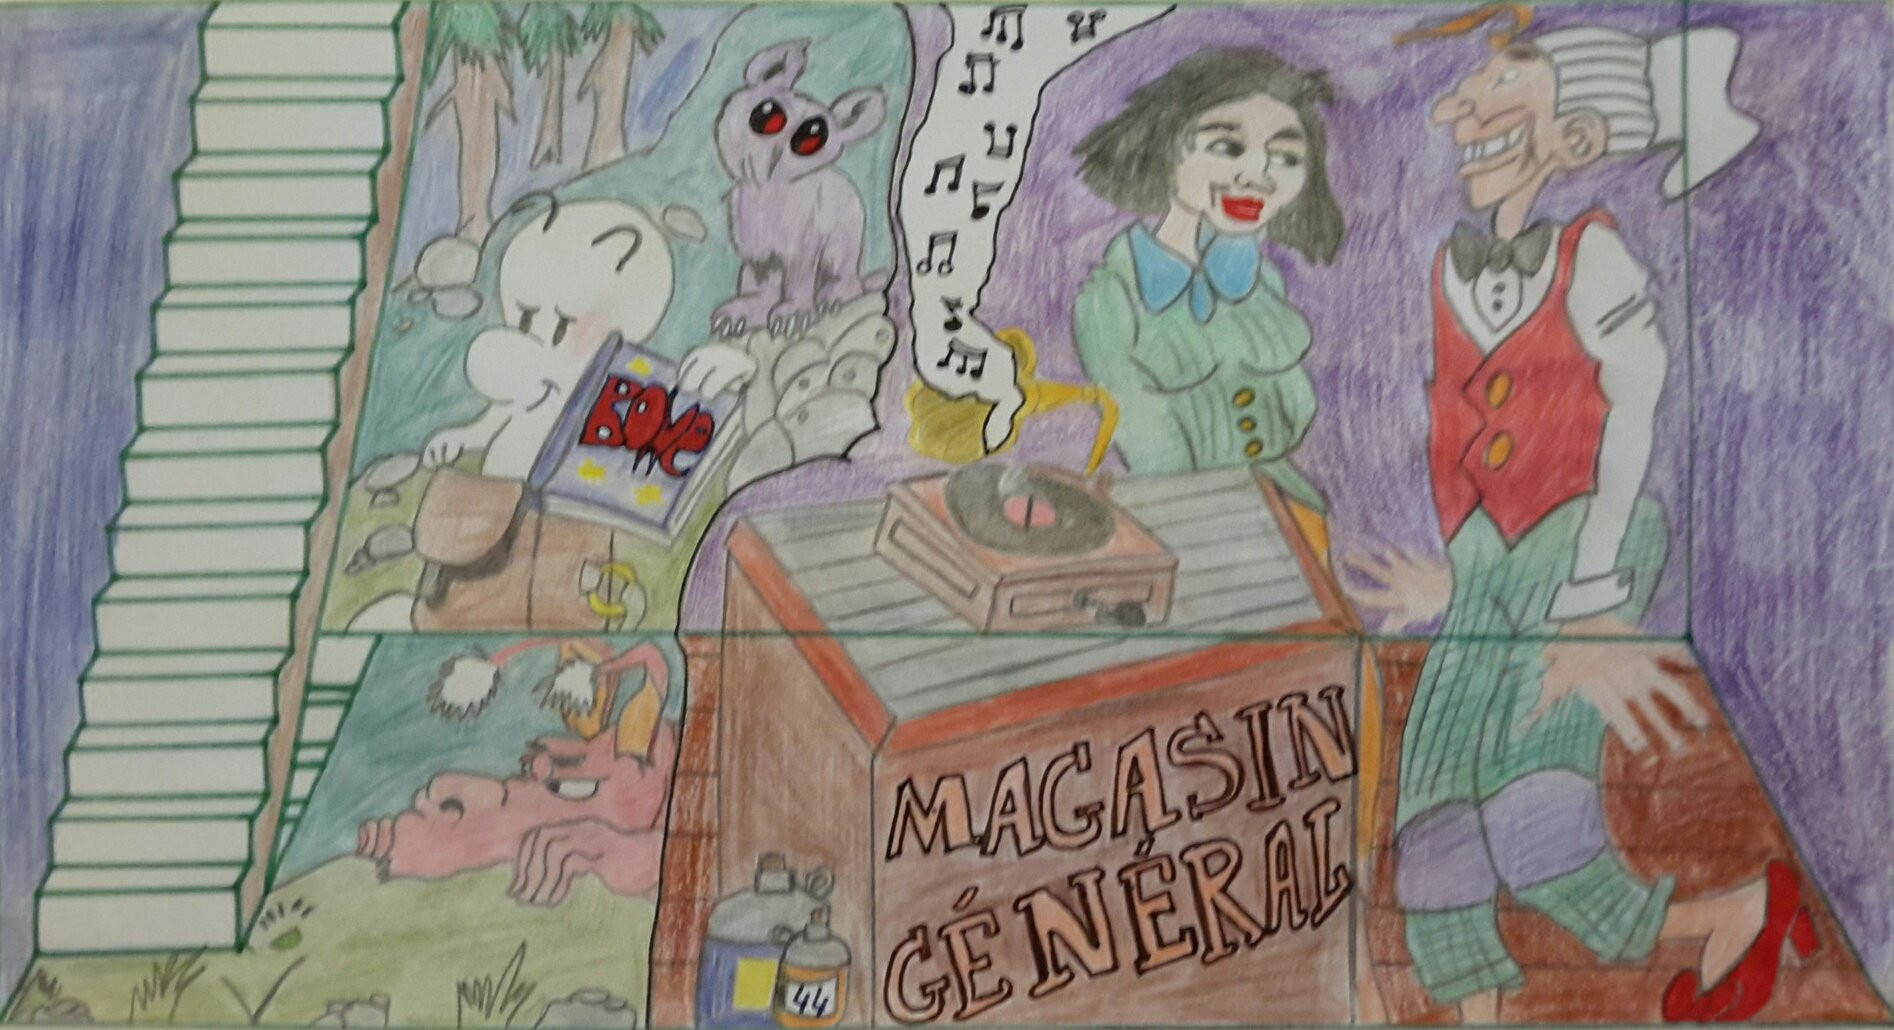 BONE
MAGASIN
GÉNÉRAL
44